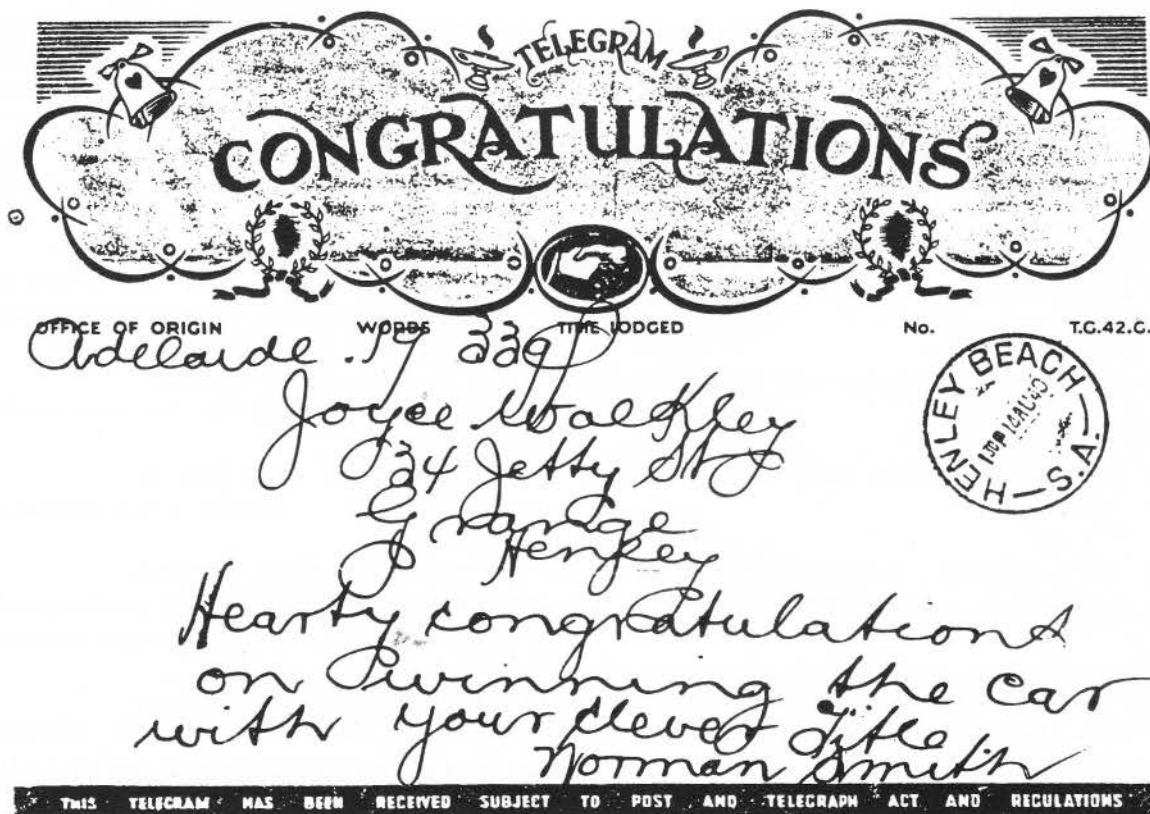 TELEGRAM
CONGRATULATIONS
OFFICE OF ORIGIN WORDS TIME LODGED No. T.G.42.C.
Adelaide . 19 339p
Joyce Walkley
34 Jetty St
Grange
Henley
Hearty congratulations
on winning the car
with your clever title
Norman Smith
HENLEY BEACH — S.A. —
THIS TELEGRAM HAS BEEN RECEIVED SUBJECT TO POST AND TELEGRAPH ACT AND REGULATIONS